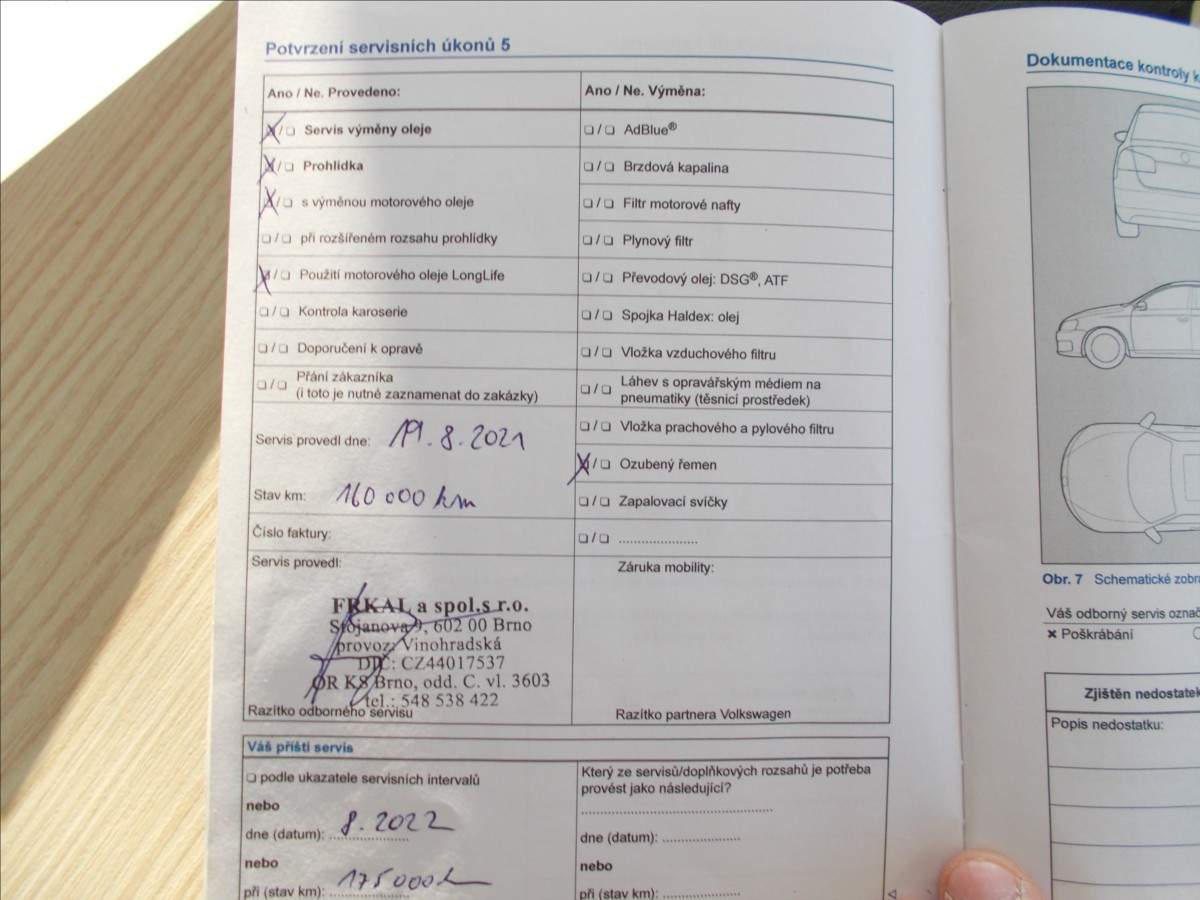 Potvrzení servisních úkonů 5
Ano / Ne. Provedeno:
☒/❏ Servis výměny oleje
☒/❏ Prohlídka
☒/❏ s výměnou motorového oleje
❏/❏ při rozšířeném rozsahu prohlídky
☒/❏ Použití motorového oleje LongLife
❏/❏ Kontrola karoserie
❏/❏ Doporučení k opravě
❏/❏ Přání zákazníka
(i toto je nutné zaznamenat do zakázky)
Servis provedl dne: 19.8.2021
Stav km: 160 000 km
Číslo faktury:
Servis provedl:
FRKAL a spol.s r.o.
Stojanova 9, 602 00 Brno
provoz: Vinohradská
DIČ: CZ44017537
OR KS Brno, odd. C. vl. 3603
tel.: 548 538 422
Razítko odborného servisu
Ano / Ne. Výměna:
❏/❏ AdBlue®
❏/❏ Brzdová kapalina
❏/❏ Filtr motorové nafty
❏/❏ Plynový filtr
❏/❏ Převodový olej: DSG®, ATF
❏/❏ Spojka Haldex: olej
❏/❏ Vložka vzduchového filtru
❏/❏ Láhev s opravářským médiem na
pneumatiky (těsnicí prostředek)
❏/❏ Vložka prachového a pylového filtru
☒/❏ Ozubený řemen
❏/❏ Zapalovací svíčky
❏/❏ ......................
Záruka mobility:
Razítko partnera Volkswagen
Váš příští servis
❏ podle ukazatele servisních intervalů
nebo
dne (datum): 8.2022
nebo
při (stav km): 175 000 km
Který ze servisů/doplňkových rozsahů je potřeba
provést jako následující?
dne (datum): ......................
nebo
při (stav km): ......................
Dokumentace kontroly
Obr. 7 Schematické
Váš odborný servis
✖ Poškrábání
Zjištěn
Popis nedostatku: